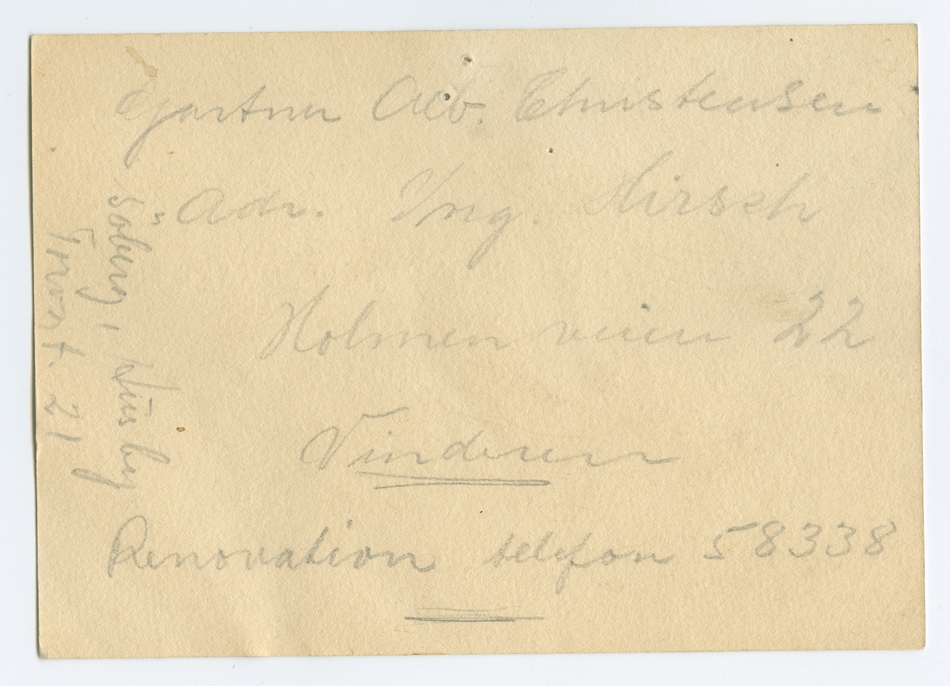 Gjartner Alb. Christensen
Adr. Ing. Hirsch
Holmen veien 22
Vinderen
Renovation telefon 58338
Soberg, Huseby
21